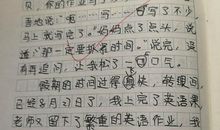 贝,你的作业写了
吾地说:"嗯……写了不少
马上就写完了。"妈妈点了点头,说
道:"那一定要抓紧时间。"说完,没
有再追问,让我松了一口口气。
假期的时间过得真快,转眼间,
已经8月31日了,我上完了英语课,
老师又留下了繁重的英语作业,我